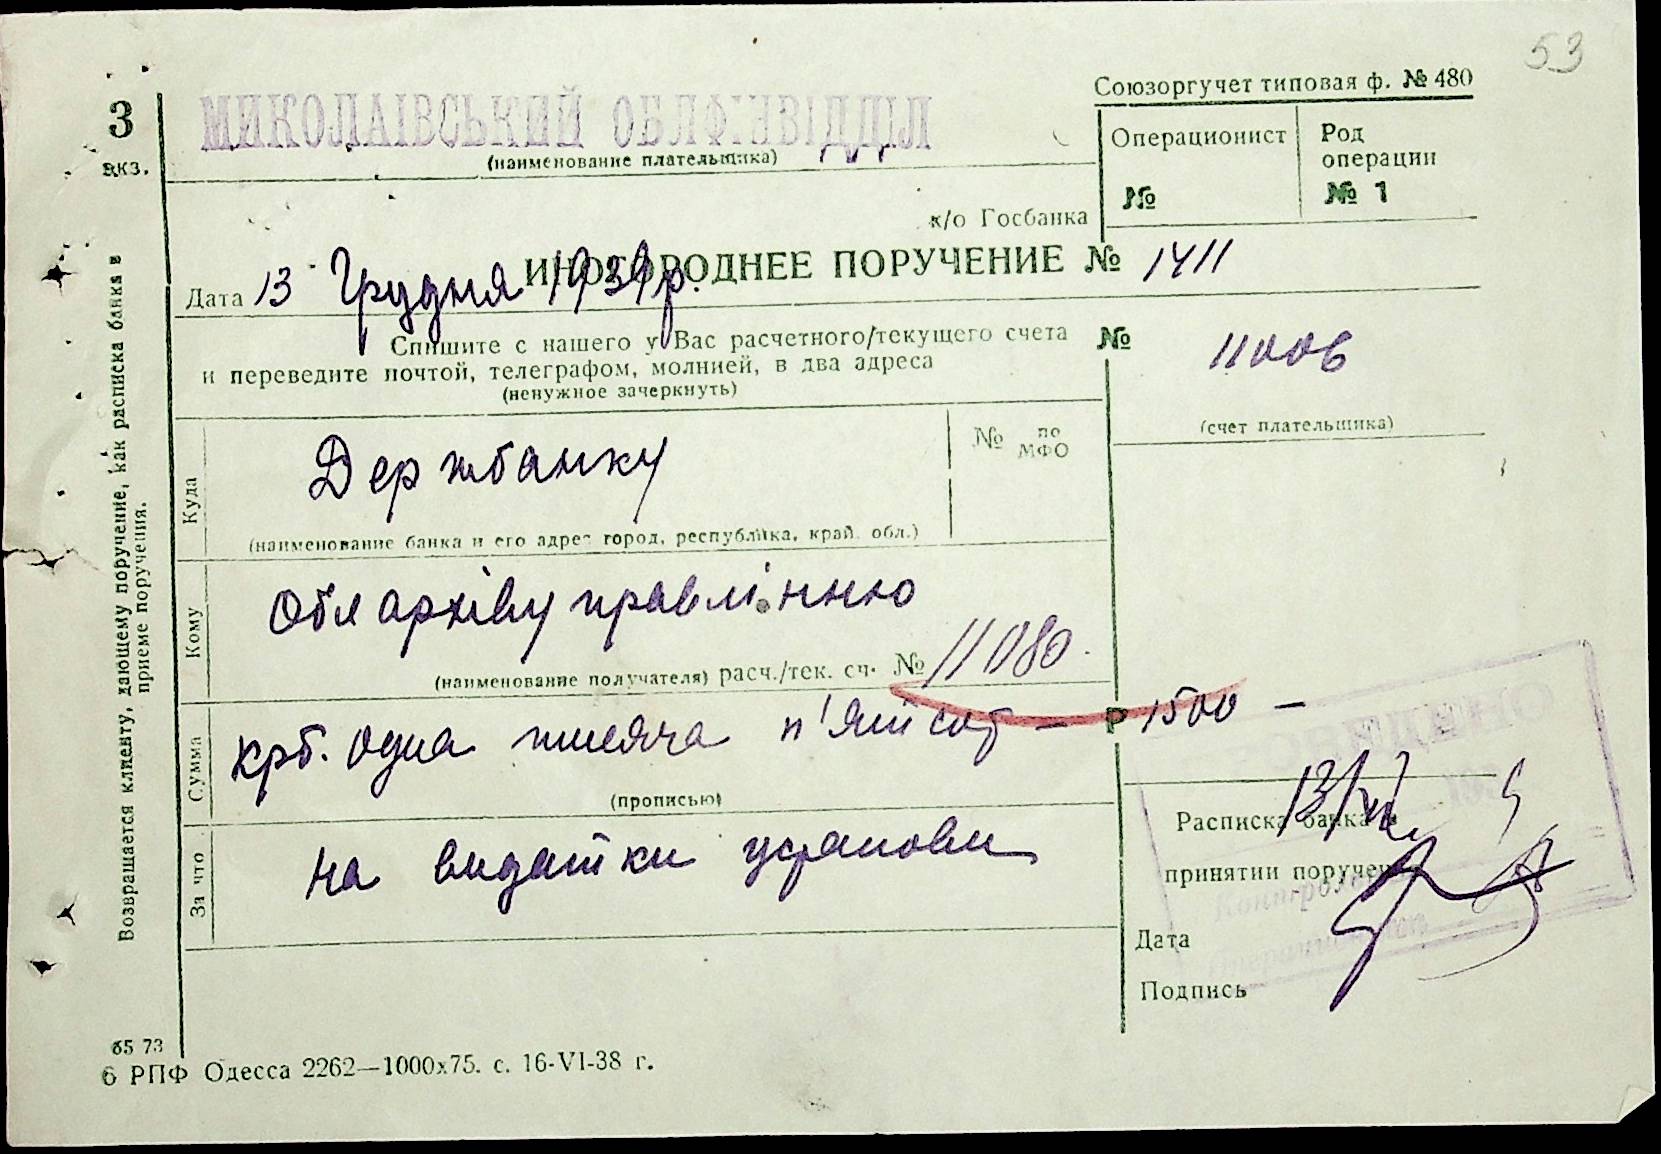 53
Союзоргучет типовая ф. № 480
3
экз.
МИКОЛАЇВСЬКИЙ ОБЛФІНВІДДІЛ
(наименование плательщика)
Операционист
№
Род
операции
№ 1
к/о Госбанка
ИНОГОРОДНЕЕ ПОРУЧЕНИЕ № 1411
Дата 13 Грудня 1939р.
Спишите с нашего у Вас расчетного/текущего счета № 11006
и переведите почтой, телеграфом, молнией, в два адреса
(ненужное зачеркнуть)
(счет плательщика)
Куда
Держбанку
№ по
МФО
(наименование банка и его адрес город, республика, край, обл.)
Кому
Обл архіву правлінню
(наименование получателя) расч./тек. сч. № 11080.
Сумма
крб. одна тисяча п'ятсот — Р 1500 —
(прописью)
За что
на видатки установи
Расписка банка в
13/XII 9
принятии поручения
Контролер
Дата
Подпись
Возвращается клиенту, дающему поручение, как расписка банка в
приеме поручения.
65 73
6 РПФ Одесса 2262—1000х75. с. 16-VI-38 г.